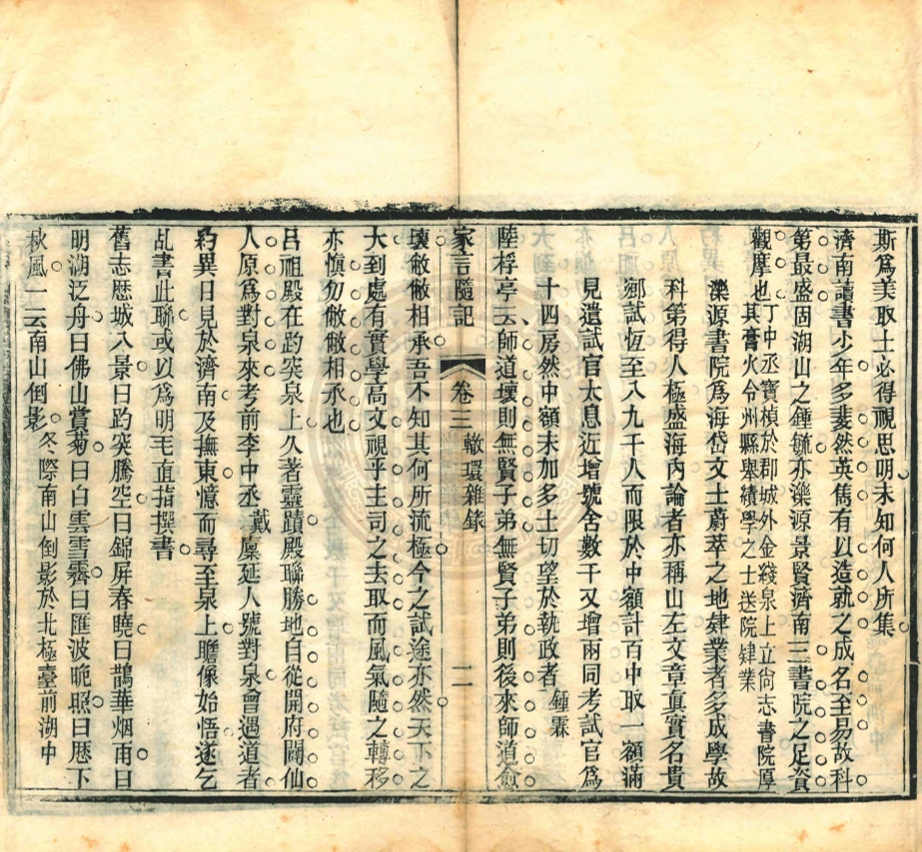 斯爲美取士必得視思明未知何人所集
濟南讀書少年多斐然英雋有以造就之成名至易故科
第最盛固湖山之鍾毓亦濼源景賢濟南三書院之足資
觀摩也丁中丞寶楨於郡城外金綫泉上立尙志書院厚
其膏火令州縣舉績學之士送院肄業
濼源書院爲海岱文士蔚萃之地肄業者多成學故
科第得人極盛海內論者亦稱山左文章眞實名貴
鄉試恆至八九千人而限於中額計百中取一額滿
見遺試官太息近增號舍數千又增兩同考試官爲
十四房然中額未加多士切望於執政者鍾霖
陸桴亭云師道壞則無賢子弟無賢子弟則後來師道愈
家言隨記 卷三 轍環雜錄 二
壞敝敝相承吾不知其何所流極今之試途亦然天下之
大到處有實學高文視乎主司之去取而風氣隨之轉移
亦愼勿敝敝相承也
呂祖殿在趵突泉上久著靈蹟殿聯勝地自從開府闢仙
人原爲對泉來考前李中丞戴廩延人號對泉曾遇道者
約異日見於濟南及撫東憶而尋至泉上瞻像始悟遂乞
乩書此聯或以爲明毛直指撰書
舊志歷城八景曰趵突騰空曰錦屏春曉曰鵲華烟雨曰
明湖泛舟曰佛山賞菊曰白雲雪霽曰匯波晩照曰歷下
秋風一云南山倒影冬際南山倒影於北極臺前湖中